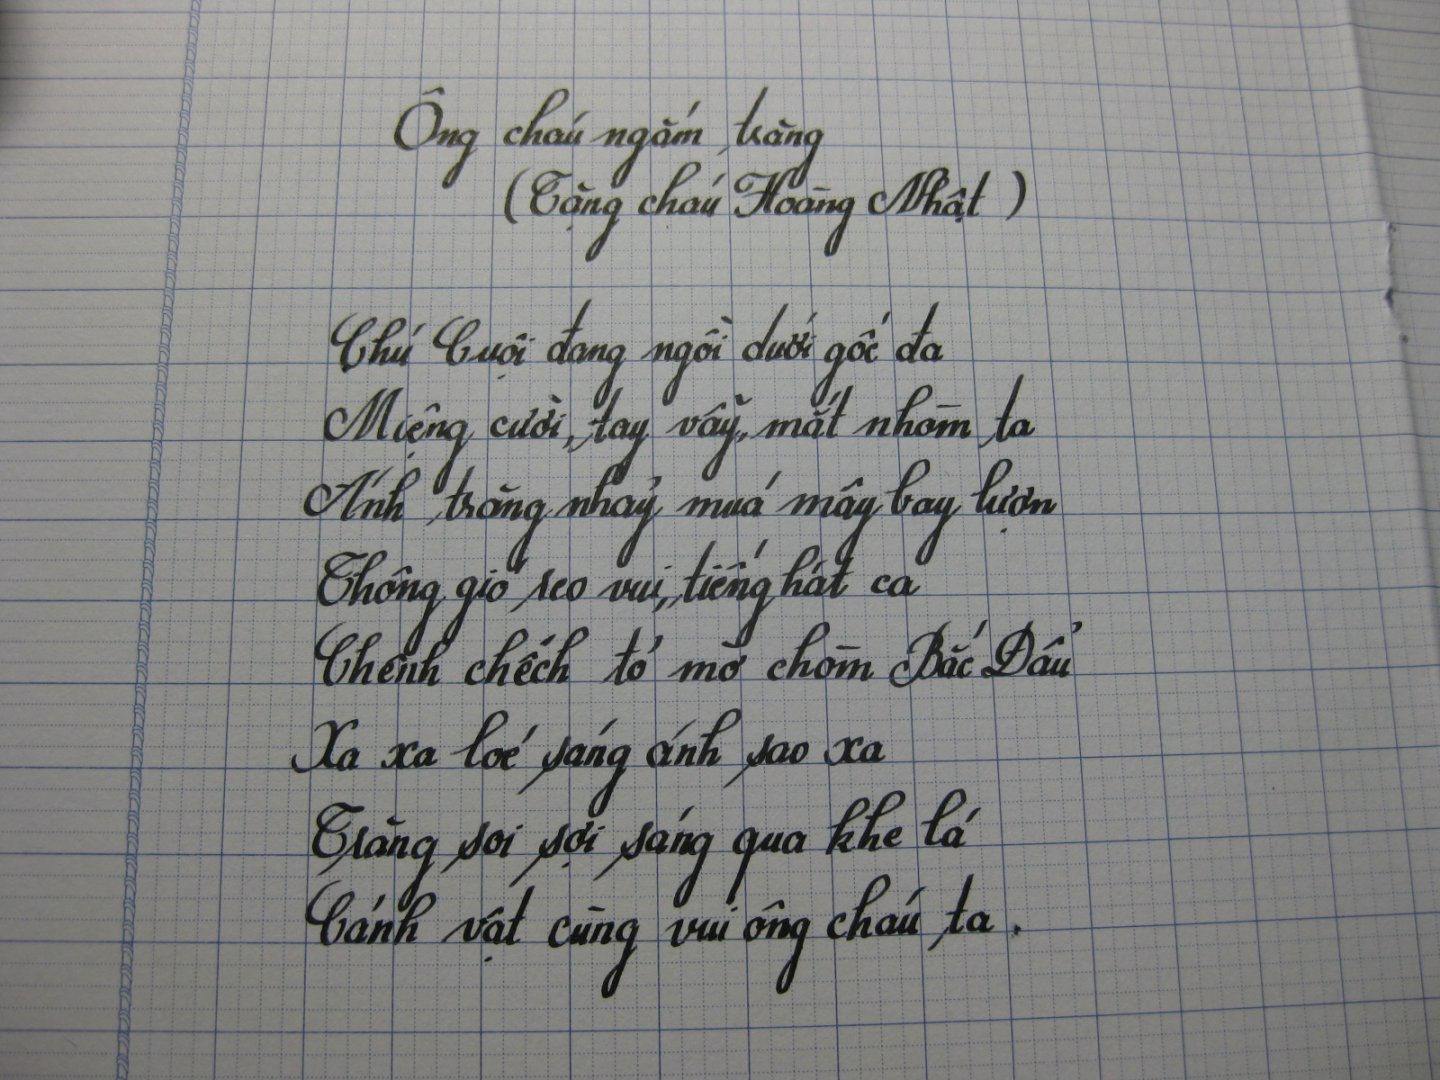 Ông cháu ngắm trăng
(Tặng cháu Hoàng Nhật)
Chú Cuội đang ngồi dưới gốc đa
Miệng cười, tay vẫy, mắt nhòm ta
Ánh trăng nhảy múa mây bay lượn
Thông gió reo vui, tiếng hát ca
Chênh chếch tỏ mờ chòm Bắc Đẩu
Xa xa loé sáng ánh sao xa
Trăng soi sợi sáng qua khe lá
Cánh vật cũng vui ông cháu ta.